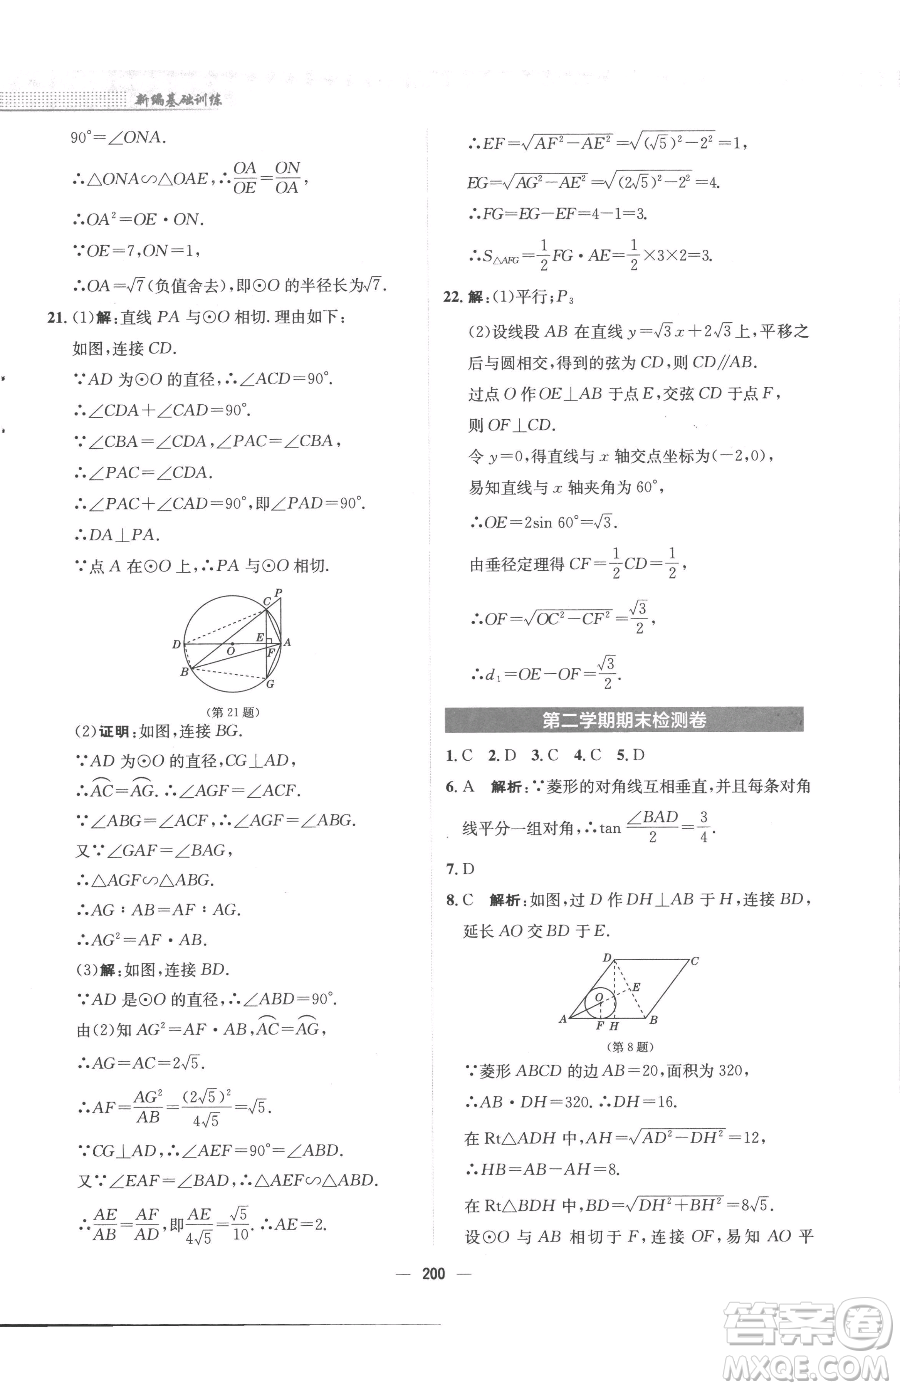 新编基础训练
90°=∠ONA.
∴△ONA∽△OAE,∴OA/OE=ON/OA,
∴OA²=OE·ON.
∵OE=7,ON=1,
∴OA=√7(负值舍去),即⊙O的半径长为√7.
21.(1)解:直线PA与⊙O相切.理由如下:
如图,连接CD.
∵AD为⊙O的直径,∴∠ACD=90°.
∴∠CDA+∠CAD=90°.
∵∠CBA=∠CDA,∠PAC=∠CBA,
∴∠PAC=∠CDA.
∴∠PAC+∠CAD=90°,即∠PAD=90°.
∴DA⊥PA.
∵点A在⊙O上,∴PA与⊙O相切.
P
C
D
E
A
O
F
B
G
(第21题)
(2)证明:如图,连接BG.
∵AD为⊙O的直径,CG⊥AD,
∴⌒AC=⌒AG.∴∠AGF=∠ACF.
∵∠ABG=∠ACF,∴∠AGF=∠ABG.
又∵∠GAF=∠BAG,
∴△AGF∽△ABG.
∴AG∶AB=AF∶AG.
∴AG²=AF·AB.
(3)解:如图,连接BD.
∵AD是⊙O的直径,∴∠ABD=90°.
由(2)知AG²=AF·AB,⌒AC=⌒AG,
∴AG=AC=2√5.
∴AF=AG²/AB=(2√5)²/4√5=√5.
∵CG⊥AD,∴∠AEF=90°=∠ABD.
又∵∠EAF=∠BAD,∴△AEF∽△ABD.
∴AE/AB=AF/AD,即AE/4√5=√5/10.∴AE=2.
∴EF=√(AF²−AE²)=√((√5)²−2²)=1,
EG=√(AG²−AE²)=√((2√5)²−2²)=4.
∴FG=EG−EF=4−1=3.
∴S△AFG=1/2FG·AE=1/2×3×2=3.
22.解:(1)平行;P₃
(2)设线段AB在直线y=√3x+2√3上,平移之
后与圆相交,得到的弦为CD,则CD∥AB.
过点O作OE⊥AB于点E,交弦CD于点F,
则OF⊥CD.
令y=0,得直线与x轴交点坐标为(−2,0),
易知直线与x轴夹角为60°,
∴OE=2sin 60°=√3.
由垂径定理得CF=1/2CD=1/2,
∴OF=√(OC²−CF²)=√3/2,
∴d₁=OE−OF=√3/2.
第二学期期末检测卷
1.C 2.D 3.C 4.C 5.D
6.A 解析:∵菱形的对角线互相垂直,并且每条对角
线平分一组对角,∴tan∠BAD/2=3/4.
7.D
8.C 解析:如图,过D作DH⊥AB于H,连接BD,
延长AO交BD于E.
D
C
O
E
A
F
H
B
(第8题)
∵菱形ABCD的边AB=20,面积为320,
∴AB·DH=320.∴DH=16.
在Rt△ADH中,AH=√(AD²−DH²)=12,
∴HB=AB−AH=8.
在Rt△BDH中,BD=√(DH²+BH²)=8√5.
设⊙O与AB相切于F,连接OF,易知AO平
— 200 —
答案圈
MXQE.COM